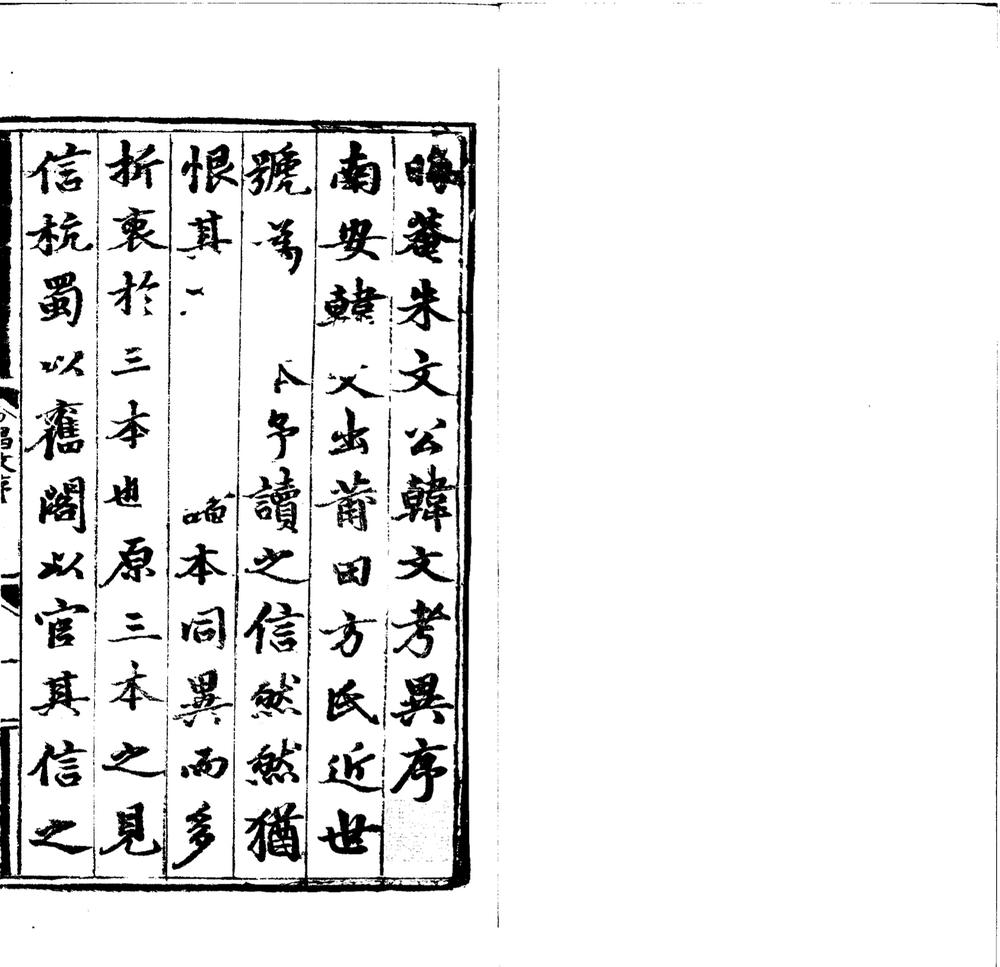 晦菴朱文公韓文考異序
南安韓文出莆田方氏近世
號為本予讀之信然然猶
恨其本同異而多
折衷於三本也原三本之見
信杭蜀以舊閣以官其信之